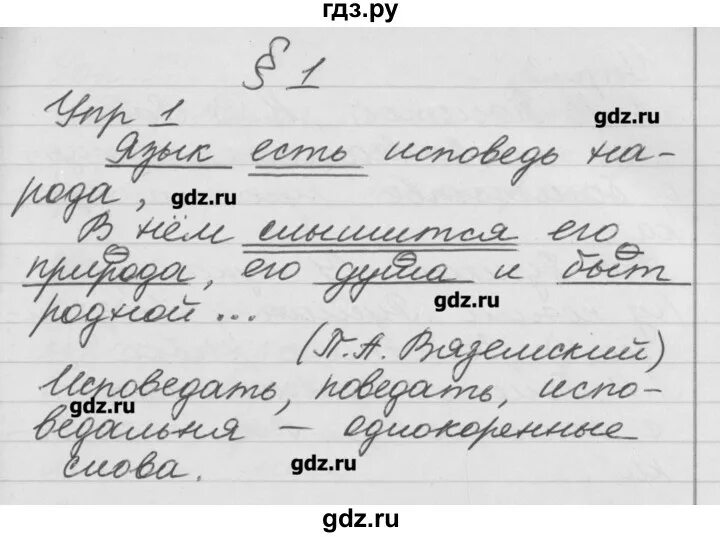 гдз.ру
§ 1
Упр 1
gdz.ru
Язык есть исповедь на-
рода,
gdz.ru
В нём слышится его
природа, его душа и быт
gdz.ru
родной...
(П.А. Вяземский)
Исповедать, поведать, испо-
gdz.ru
ведальня — однокоренные
слова.
gdz.ru
gdz.ru